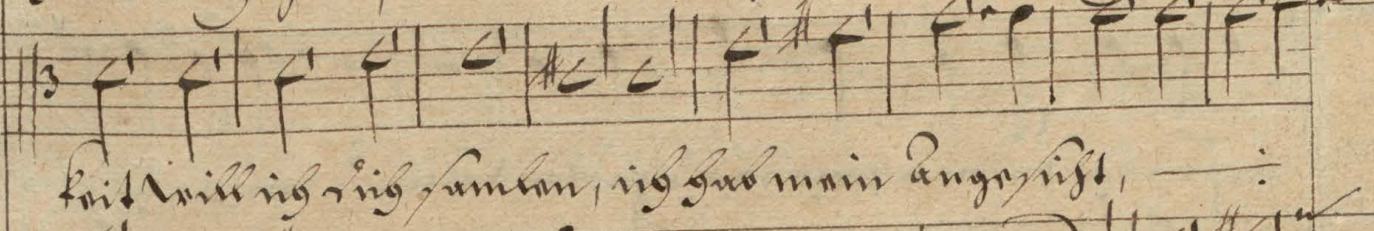 3
keit will ich dich samlen, ich hab mein Angesicht, — :